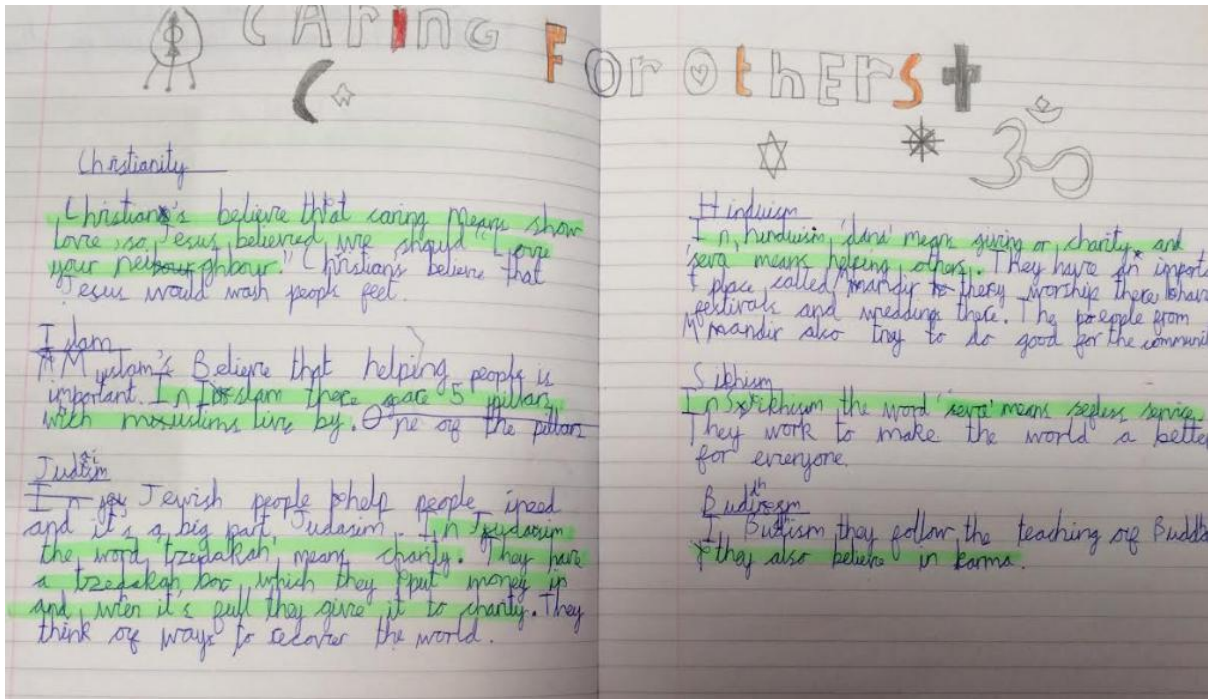 CARING FOR OTHERS
Christianity
Christian's believe that caring means show
love, so Jesus believed we should "Love
your neighbour." Christians believe that
Jesus would wash people feet.
Islam
Muslam's Believe that helping people is
important. In Islam there are 5 pillars
with muslims live by. One of the pillars
Judaism
In Jewish people help people ineed
and it's a big part Judaism. In Judasim
the word 'tzedakah' means charity. They have
a tzedakah box, which they put money in
and when it's full they give it to charity. They
think of ways to recover the world.
Hinduism
In hinduism, 'dana' means giving or charity and
'seva' means helping others. They have an importa
t place called mandir they worship there
festivals and wedding there. The people from
mandir also try to do good for the communit
Sikhism
In Sikhism, the word 'seva' means sefless service.
They work to make the world a bette
for everyone.
Budism
I Budism they follow the teaching of Buddh
they also believe in karma.